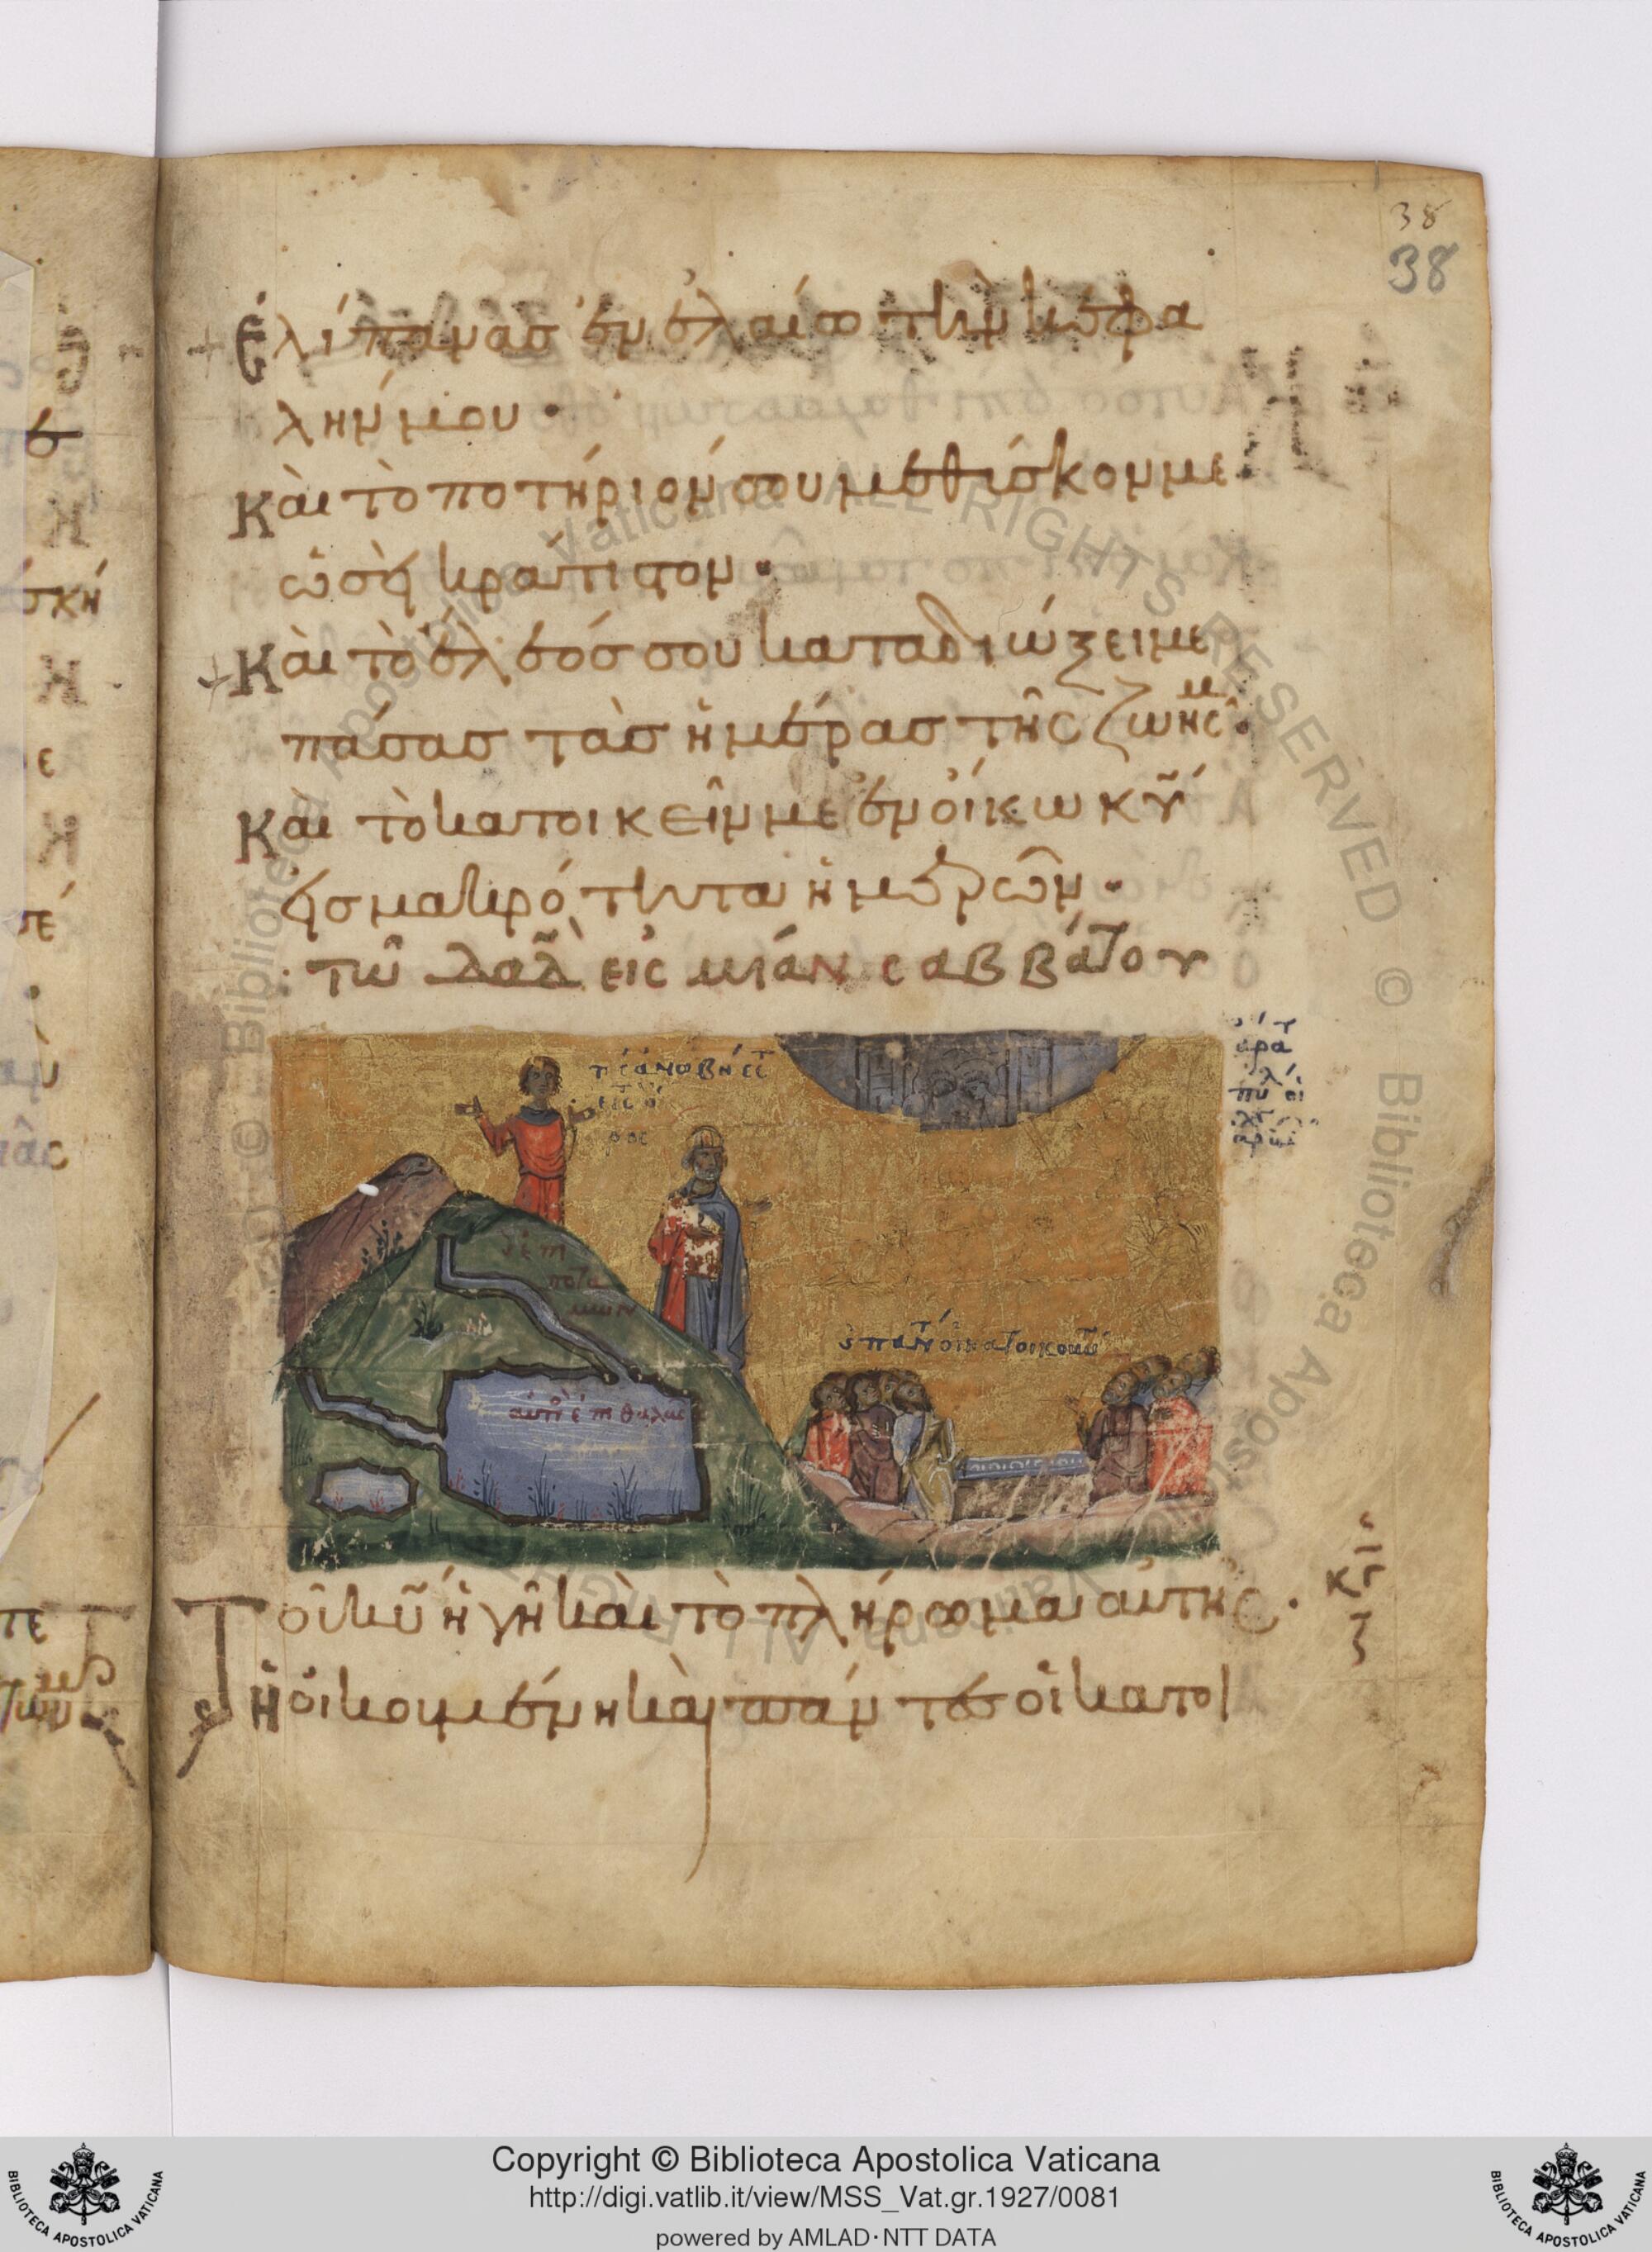 38
38
Ἐλίπανας ἐν ἐλαίω τὴν κεφα
λήν μου·
Καὶ τὸ ποτήριόν σου μεθύσκον με
ὡσεὶ κράτιστον·
Καὶ τὸ ἔλεός σου καταδιώξει με
πάσας τὰς ἡμέρας τῆς ζωῆς μ·
Καὶ τὸ κατοικεῖν με ἐν οἴκω κυ
εἰς μακρότητα ἡμερῶν·
τῶ δαδ εἰς μίαν σαββάτου
τίς ἀναβήσετ
εἰς τὸ
ὄρος
ἄρα
πύλ
οἱ
ἐπὶ
ποτα
μῶν
αὐτὸς ἐπὶ θαλασ
πάντες οἱ κατοικοῦντες
Τοῦ κυ ἡ γῆ καὶ τὸ πλήρωμα αὐτῆς·
ἡ οἰκουμένη καὶ πάντες οἱ κατοι
Copyright © Biblioteca Apostolica Vaticana
http://digi.vatlib.it/view/MSS_Vat.gr.1927/0081
powered by AMLAD·NTT DATA
BIBLIOTECA APOSTOLICA VATICANA
BIBLIOTECA APOSTOLICA VATICANA